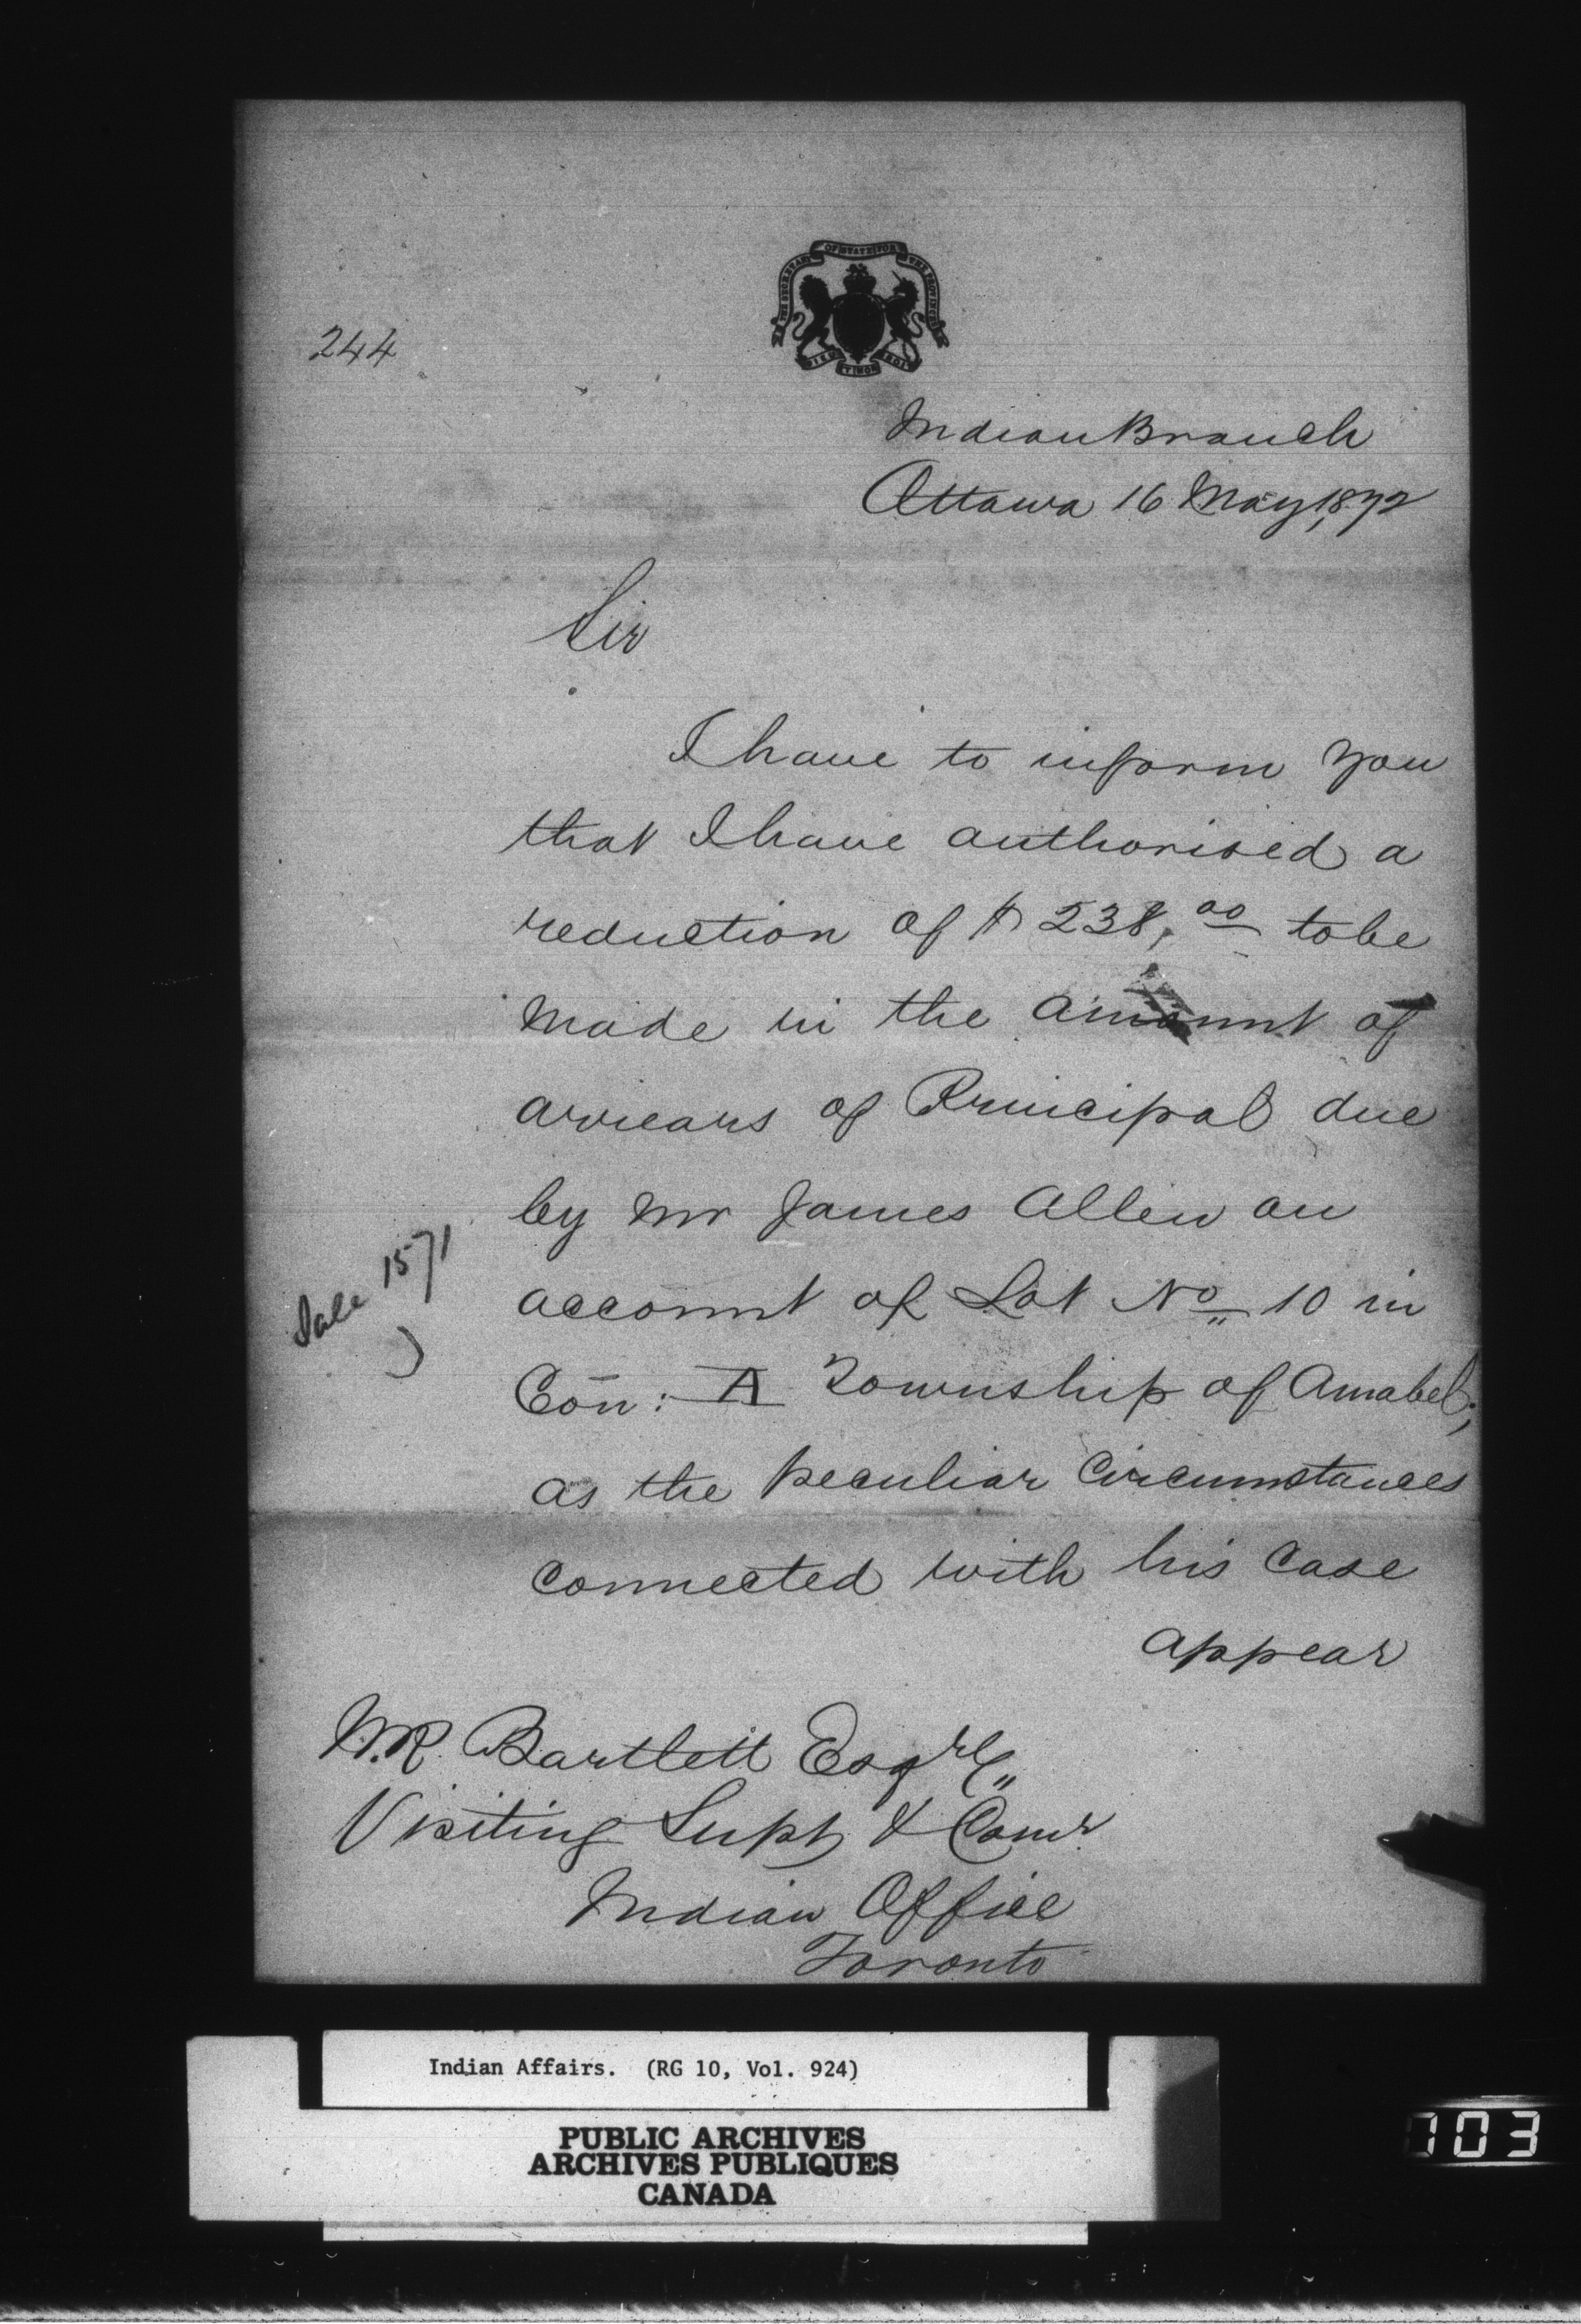 THE SECRETARY OF STATE FOR THE PROVINCES
DIEU ET MON DROIT
244
Indian Branch
Ottawa 16 May, 1872
Sir
I have to inform you
that I have authorised a
reduction of $ 238,00 to be
made in the amount of
arrears of Principal due
by Mr James Allen on
Sale 1571
account of Lot No 10 in
Con: A Township of Amabel;
as the peculiar circumstances
connected with his case
appear
W.R. Bartlett Esqre
Visiting Supt & Comr
Indian Office
Toronto
Indian Affairs. (RG 10, Vol. 924)
PUBLIC ARCHIVES
ARCHIVES PUBLIQUES
CANADA
103